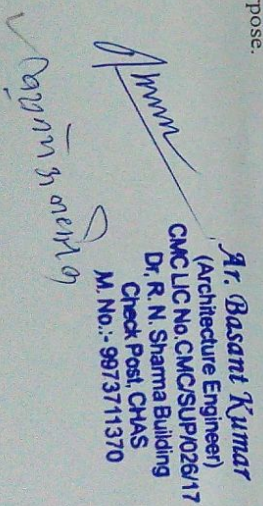 rpose.
Ar. Basant Kumar
(Architecture Engineer)
CMC LIC No.CMC/SUP/026/17
Dr. R. N. Sharma Building
Check Post, CHAS
M. No.:- 9973711370